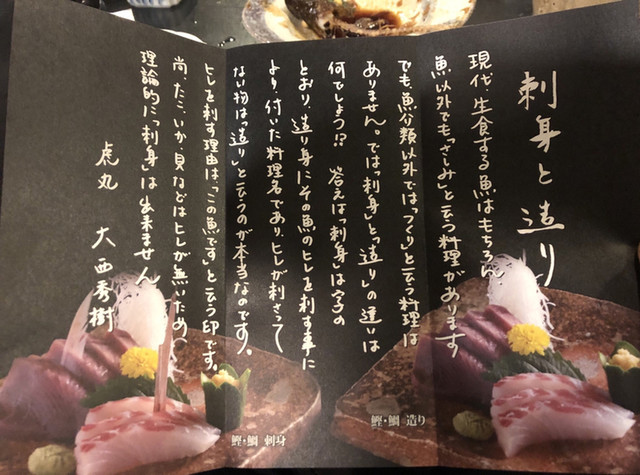 刺身と造り
現代、生食する魚はもちろん、
魚以外でも「さしみ」と云う料理があります
でも、魚介類以外では「つくり」と云う料理は
ありません。では「刺身」と「造り」の違いは
何でしょう!? 答えは「刺身」は字の
とおり、造り身にその魚のヒレを刺す事に
より、付いた料理名であり、ヒレが刺さって
ない物は「造り」と云うのが本当なのです。
ヒレを刺す理由は「この魚です」と云う印です。
尚、たこ、いか、貝などはヒレが無いため
理論的に「刺身」は出来ません
虎丸 大西秀樹
鰹・鯛 造り
鰹・鯛 刺身